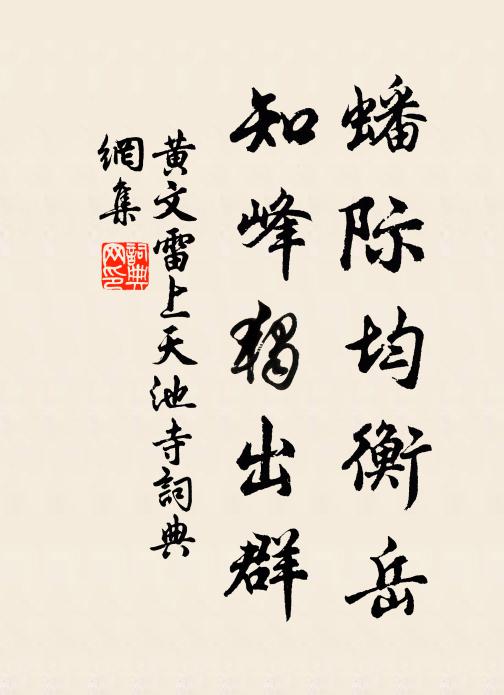 蟠际均衡岳
知峰独出群
黄文雷上天池寺詞典
網集
詞典
网印